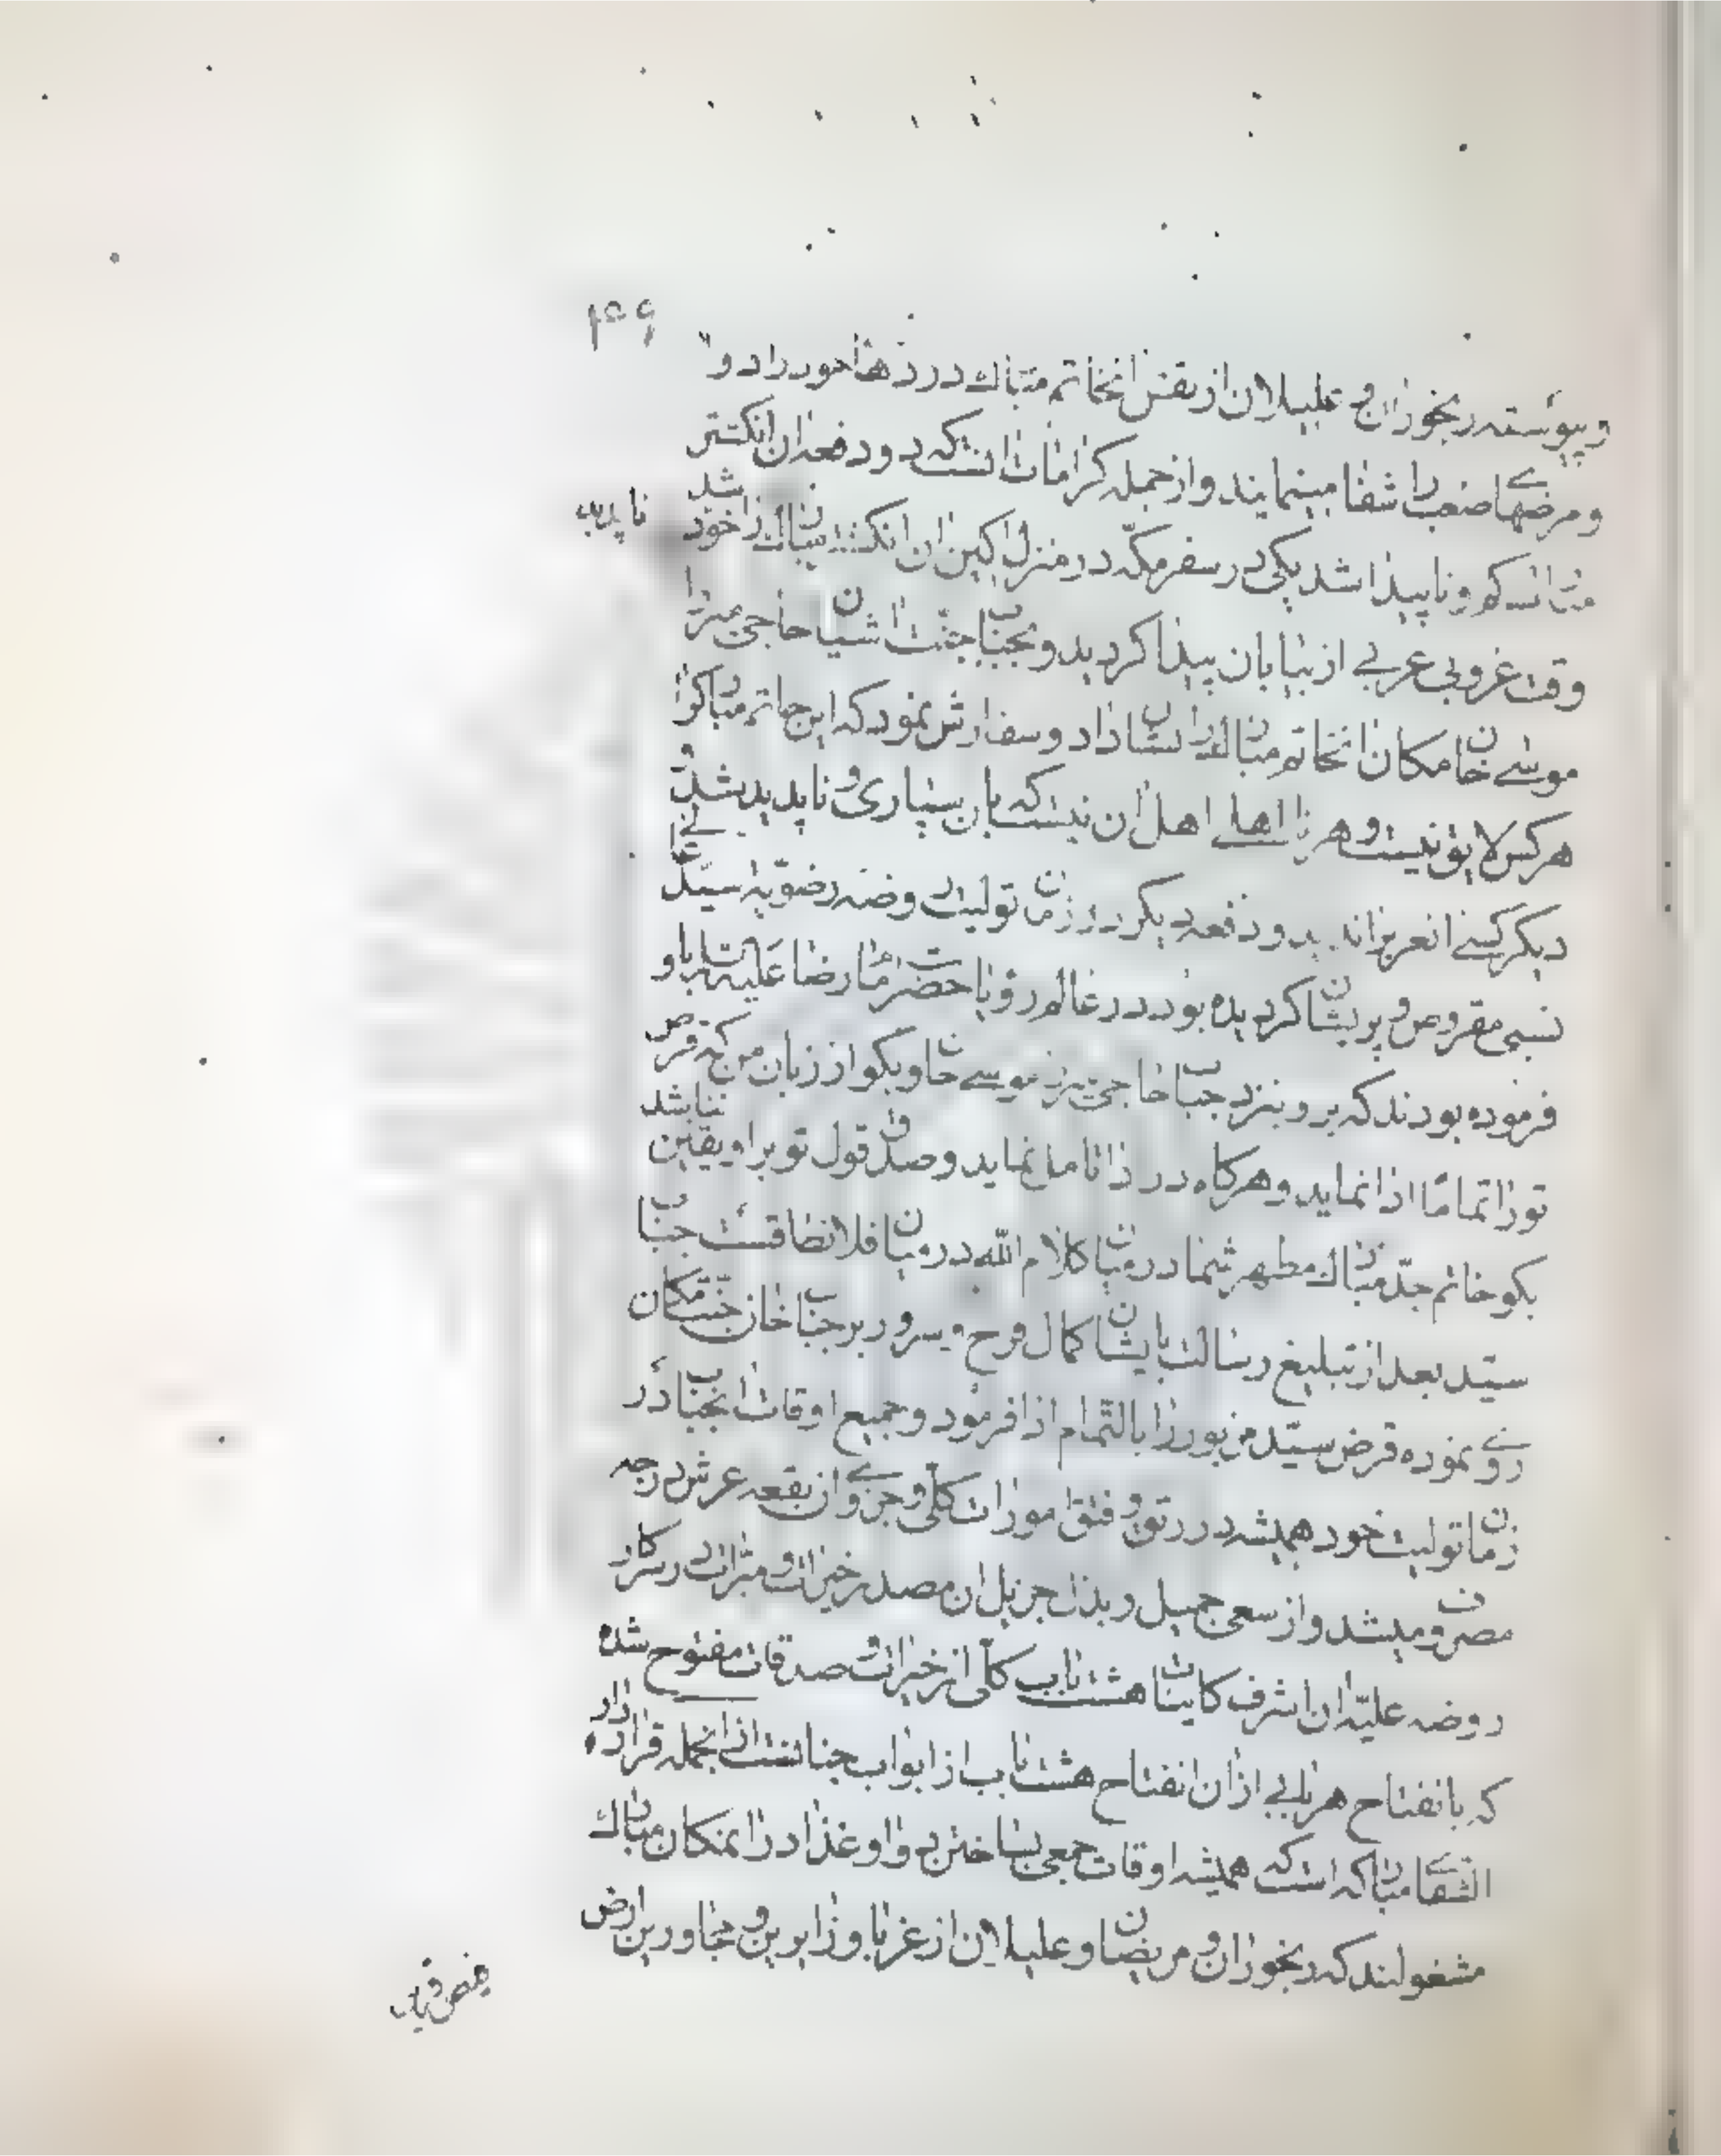 ۴۶
و پیوسته رنجوران و علیلان از نقش انخاتم مبارك دردهاء خود را دوا
و مرضهای صعب را شفا مینمایند و از جمله کرامات انست که دو دفعه ان انکشتر
کم و ناپیدا شد یکی در سفر مکّه در منزل ان انکشتر مبارك از خود ناپدید شد
وقت غروبی عربی از بیابان پیدا کردید و بجناب جنّت اشیان حاجی میرزا
موسی خان مکان انخاتم مبارك را نشان داد و سفارش نمود که این خاتم مبارکرا
هر کس لایق نیست و هر نا اهلی اهل ان نیست که بان بسپاری و ناپدید شد و
دیکر کسی انعرب را ندید و دفعه دیکر در زمان تولیت روضه رضویّه سیّد
نسبی مقروض و پریشان کردیده بود در عالم رؤیا حضرت امام رضا علیه السّلام باو
فرموده بودند که برو بنزد جناب حاجی میرزا موسی خان و بکو از زبان من که قرض
تورا تماما ادا نماید و هرکاه در ادا تامل نماید و صدق قول تو بر او یقین نباشد
بکو خاتم جدّ مبارك مطهر شما در میان کلام الله در میان فلان طاقست جناب
سیّد بعد از تبلیغ رسالت بایشان کمال فرح و سرور بر جناب خان جنّت مکان
روی نموده قرض سیّد مزبور را بالتّمام ادا فرمود و جمیع اوقات انجناب در
زمان تولیت خود همیشه در رتق و فتق امورات کلّی و جزوی ان بقعه عرش درجه
مصروف میشد و از سعی جمیل و بذل جزیل ان مصدر خیرات و مبرّات در سرکار
روضه علیّه ان اشرف کاینات هشت باب کلّی از خیرات و صدقات مفتوح شده
که بانفتاح هر بابی از ان انفتاح هشت باب از ابواب جنانست از انجمله قرار داده
الشفای مبارکه است که همیشه اوقات جمعی بساختن دوا و غذا در انمکان مبارك
مشغولند که رنجوران و مریضان و علیلان از غربا و زایرین و مجاورین ارض
فیض